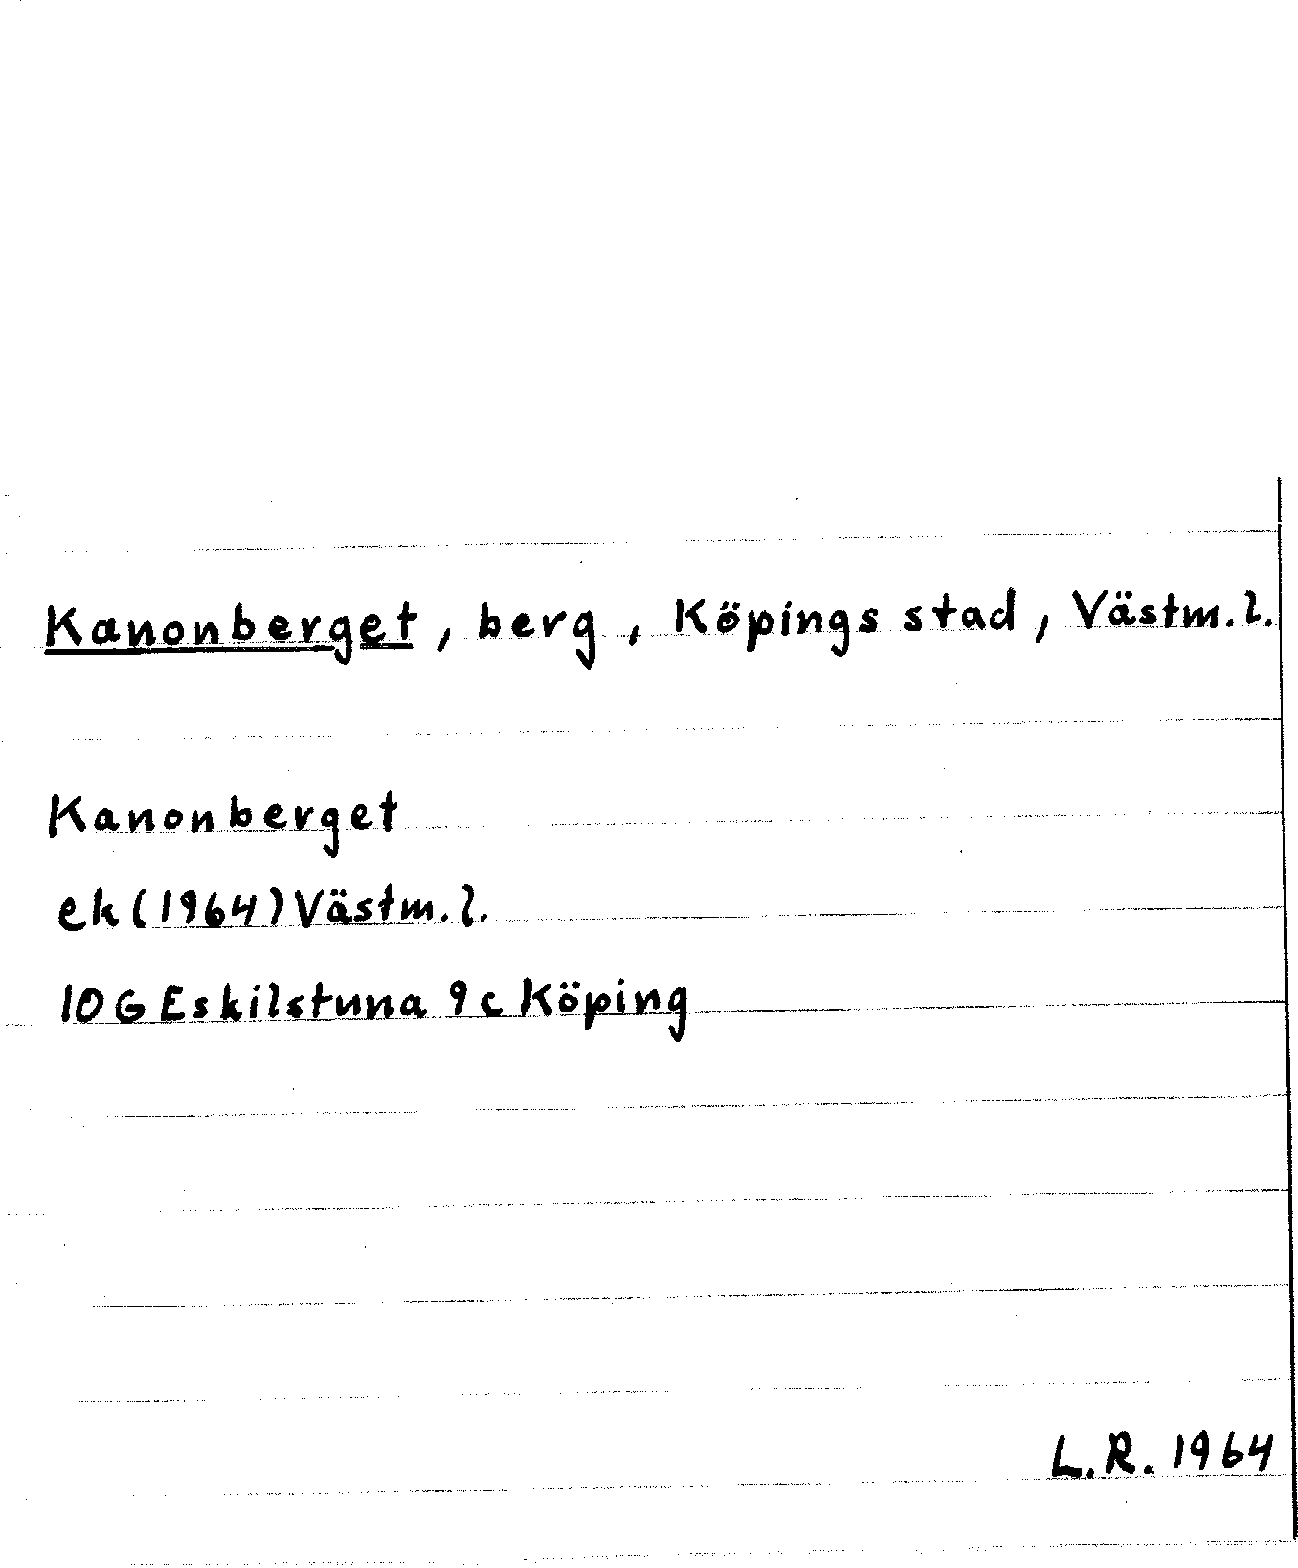 Kanonberget, berg, Köpings stad, Västm.l.
Kanonberget
ek(1964)Västm.l.
10G Eskilstuna 9c Köping
L.R. 1964